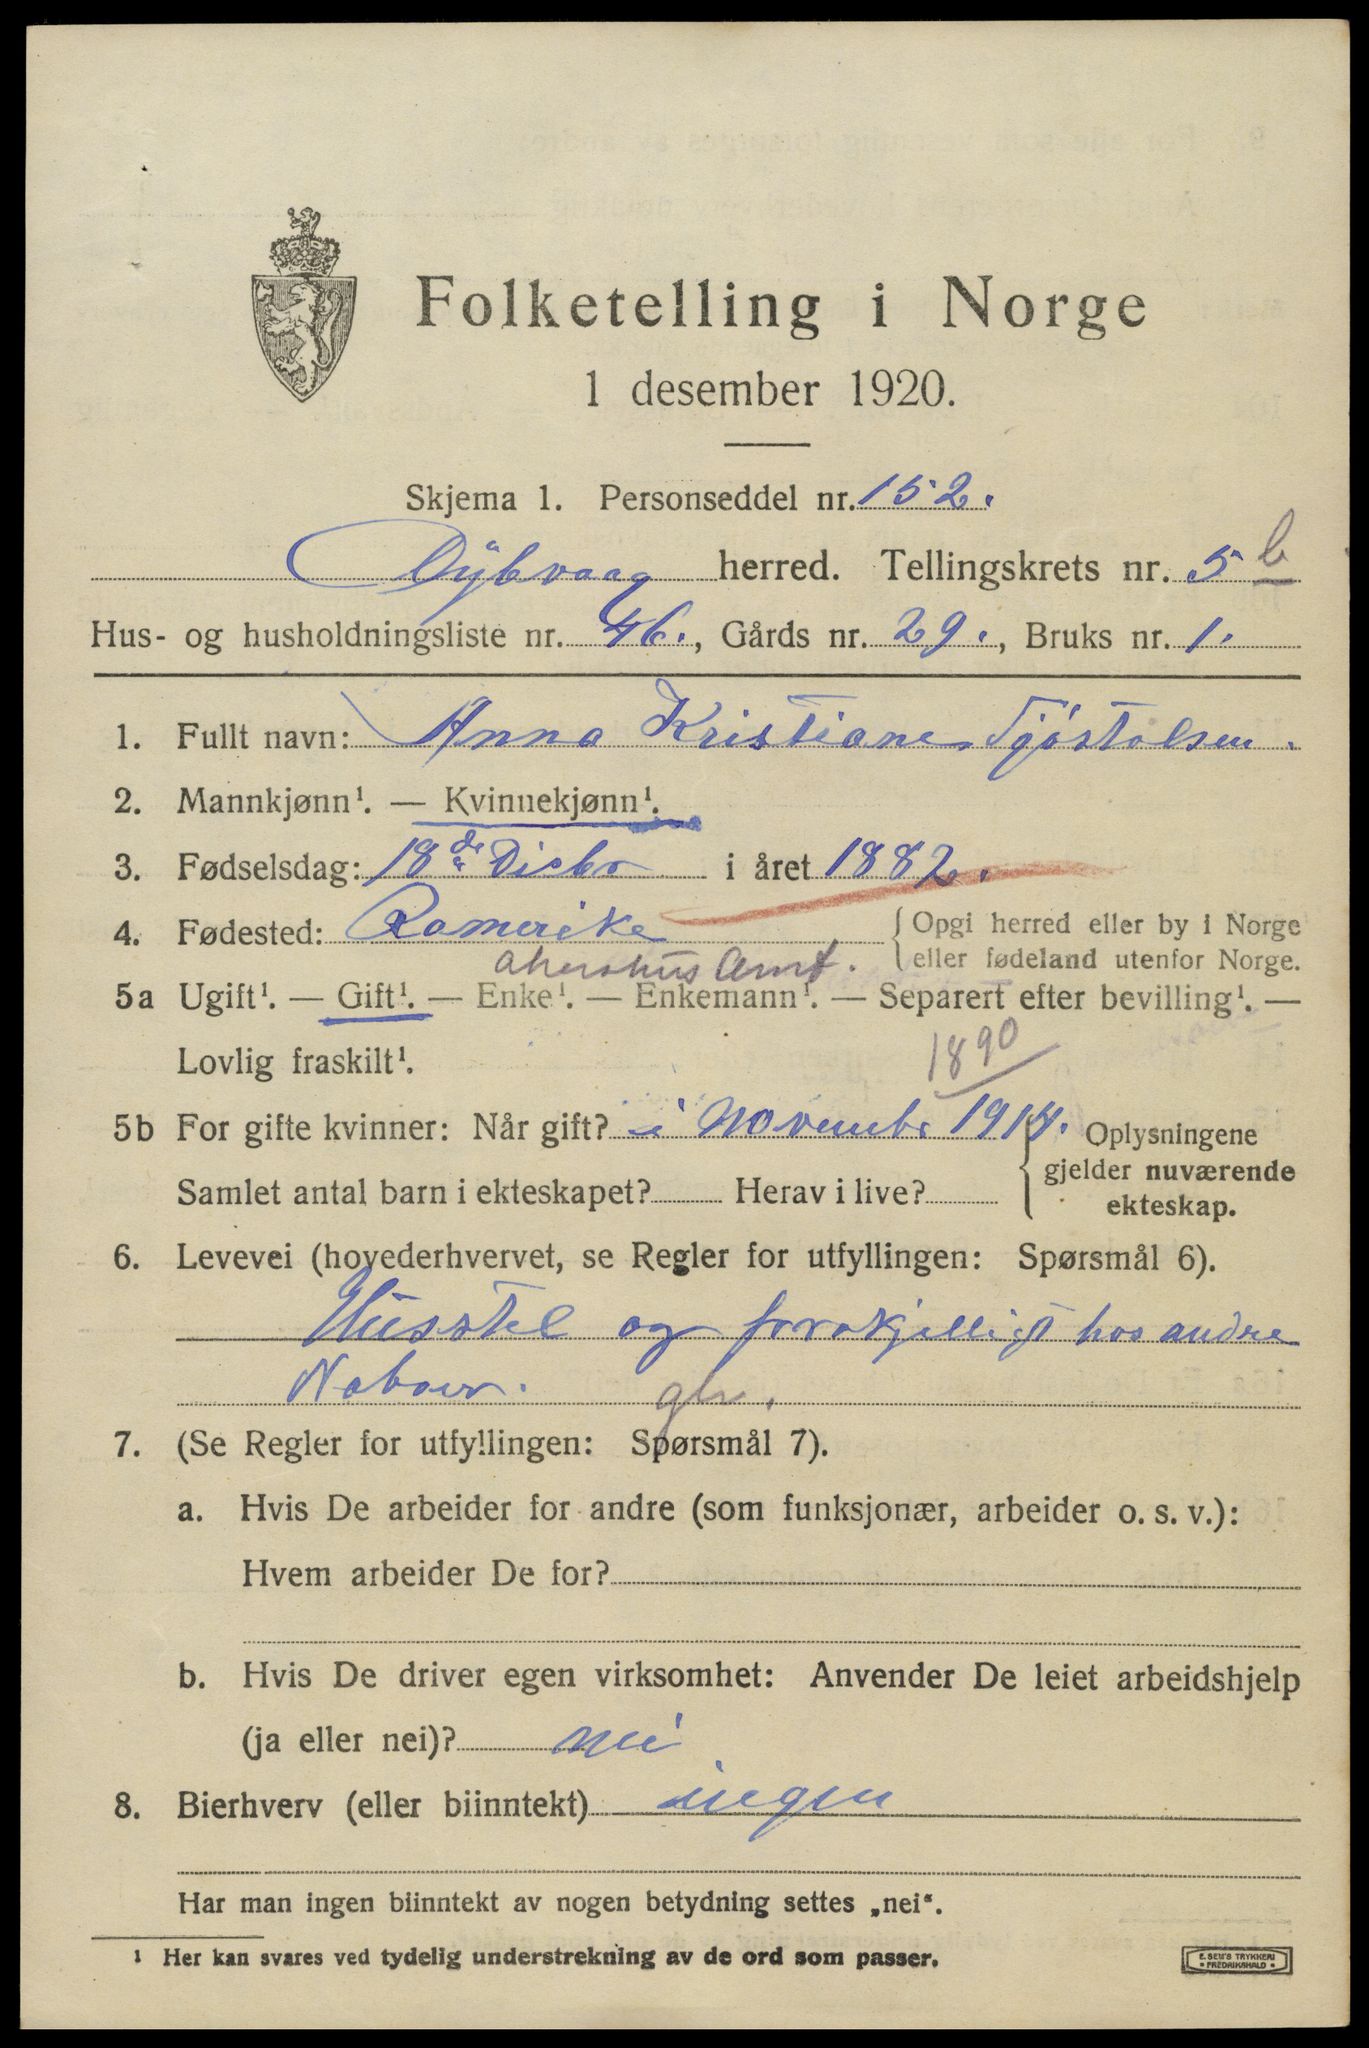 Folketelling i Norge
1 desember 1920.
Skjema 1. Personseddel nr. 152.
Dybvaag herred. Tellingskrets nr. 5 b
Hus- og husholdningsliste nr. 46., Gårds nr. 29., Bruks nr. 1.
1. Fullt navn: Anna Kristiane Tjøstolsen.
2. Mannkjønn¹. — Kvinnekjønn¹.
3. Fødselsdag: 18de Decbr i året 1882.
4. Fødested: Romerike { Opgi herred eller by i Norge
Akershus Amt. eller fødeland utenfor Norge.
5a Ugift¹. — Gift¹. — Enke¹. — Enkemann¹. — Separert efter bevilling¹. —
Lovlig fraskilt¹.
1890
5b For gifte kvinner: Når gift? i Novembr 1914. { Oplysningene
gjelder nuværende
Samlet antal barn i ekteskapet? Herav i live?
ekteskap.
6. Levevei (hovederhvervet, se Regler for utfyllingen: Spørsmål 6).
Husstel og forskjelligt hos andre
Naboer.
7. (Se Regler for utfyllingen: Spørsmål 7).
a. Hvis De arbeider for andre (som funksjonær, arbeider o. s. v.):
Hvem arbeider De for?
b. Hvis De driver egen virksomhet: Anvender De leiet arbeidshjelp
(ja eller nei)? nei
8. Bierhverv (eller biinntekt) ingen
Har man ingen biinntekt av nogen betydning settes „nei“.
¹ Her kan svares ved tydelig understrekning av de ord som passer.
E. SEM'S TRYKKERI
• FREDRIKSHALD •